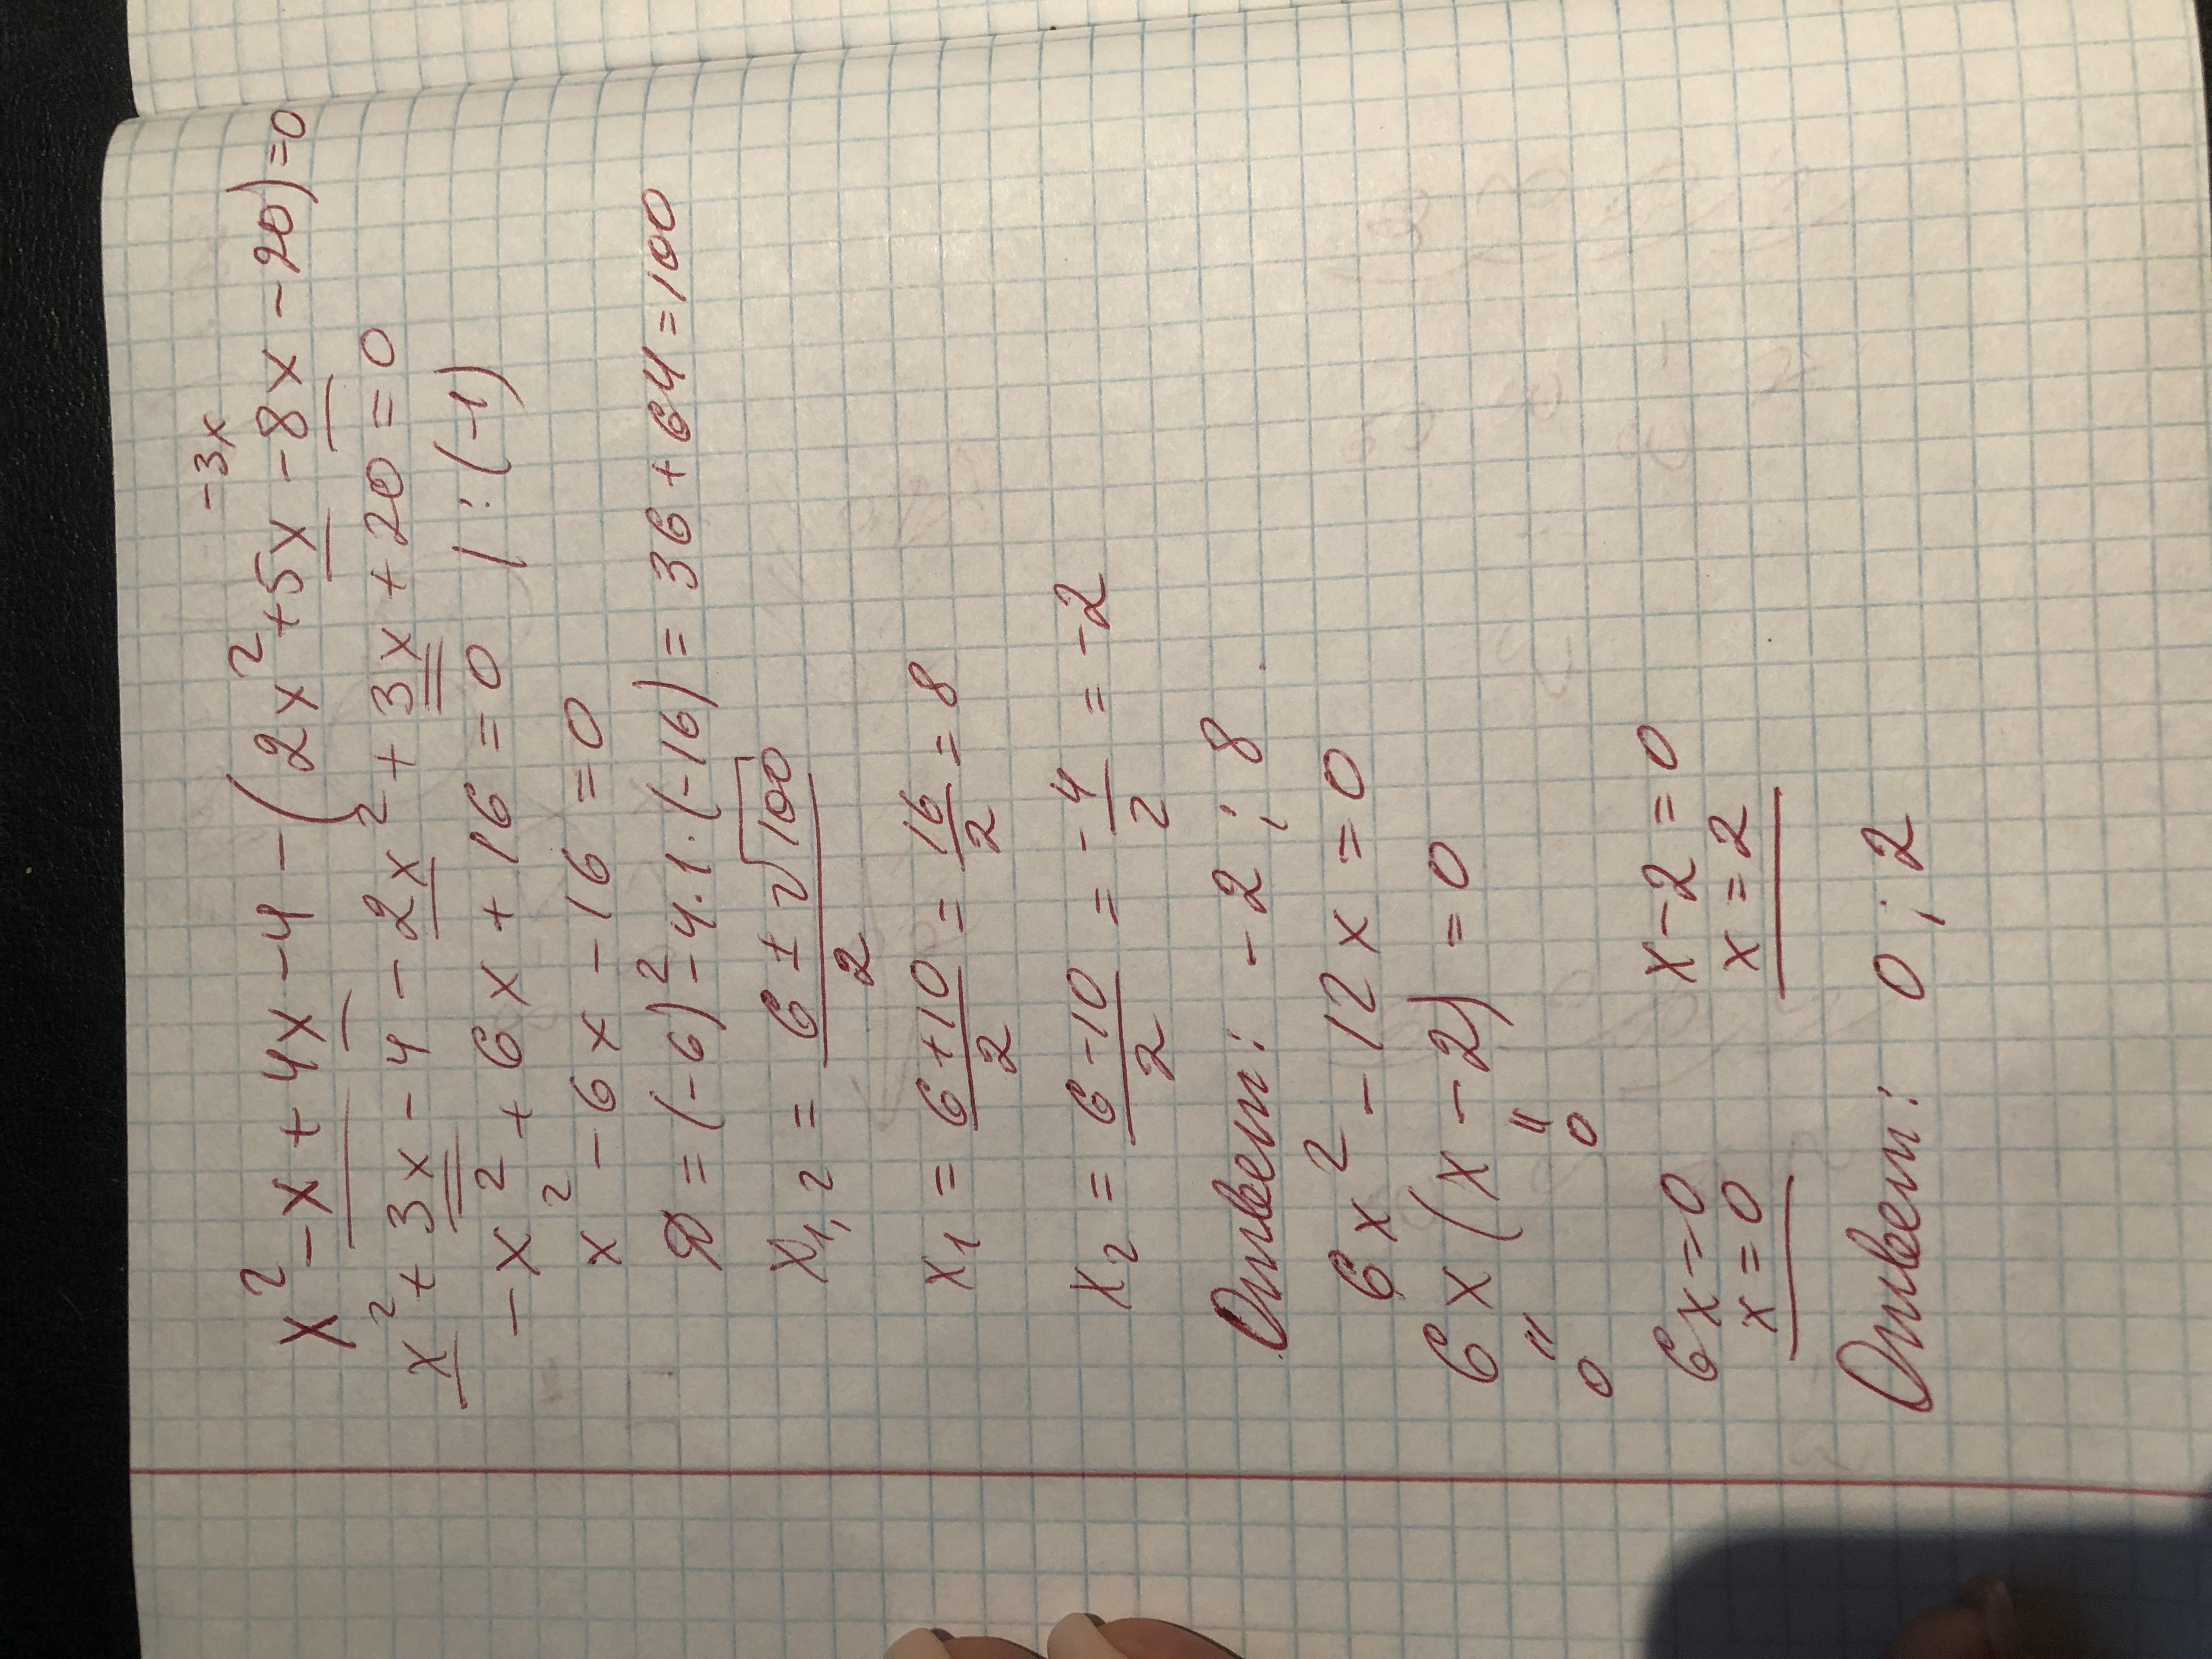 -3x
x² - x + 4x - 4 - (2x² + 5x - 8x - 20) = 0
x² + 3x - 4 - 2x² + 3x + 20 = 0
-x² + 6x + 16 = 0 | : (-1)
x² - 6x - 16 = 0
D = (-6)² - 4 · 1 · (-16) = 36 + 64 = 100
x₁,₂ = (6 ± √100)/2
x₁ = (6 + 10)/2 = 16/2 = 8
x₂ = (6 - 10)/2 = -4/2 = -2
Ответ: -2 ; 8
6x² - 12x = 0
6x (x - 2) = 0
" "
0 0
6x = 0 x - 2 = 0
x = 0 x = 2
Ответ: 0 ; 2